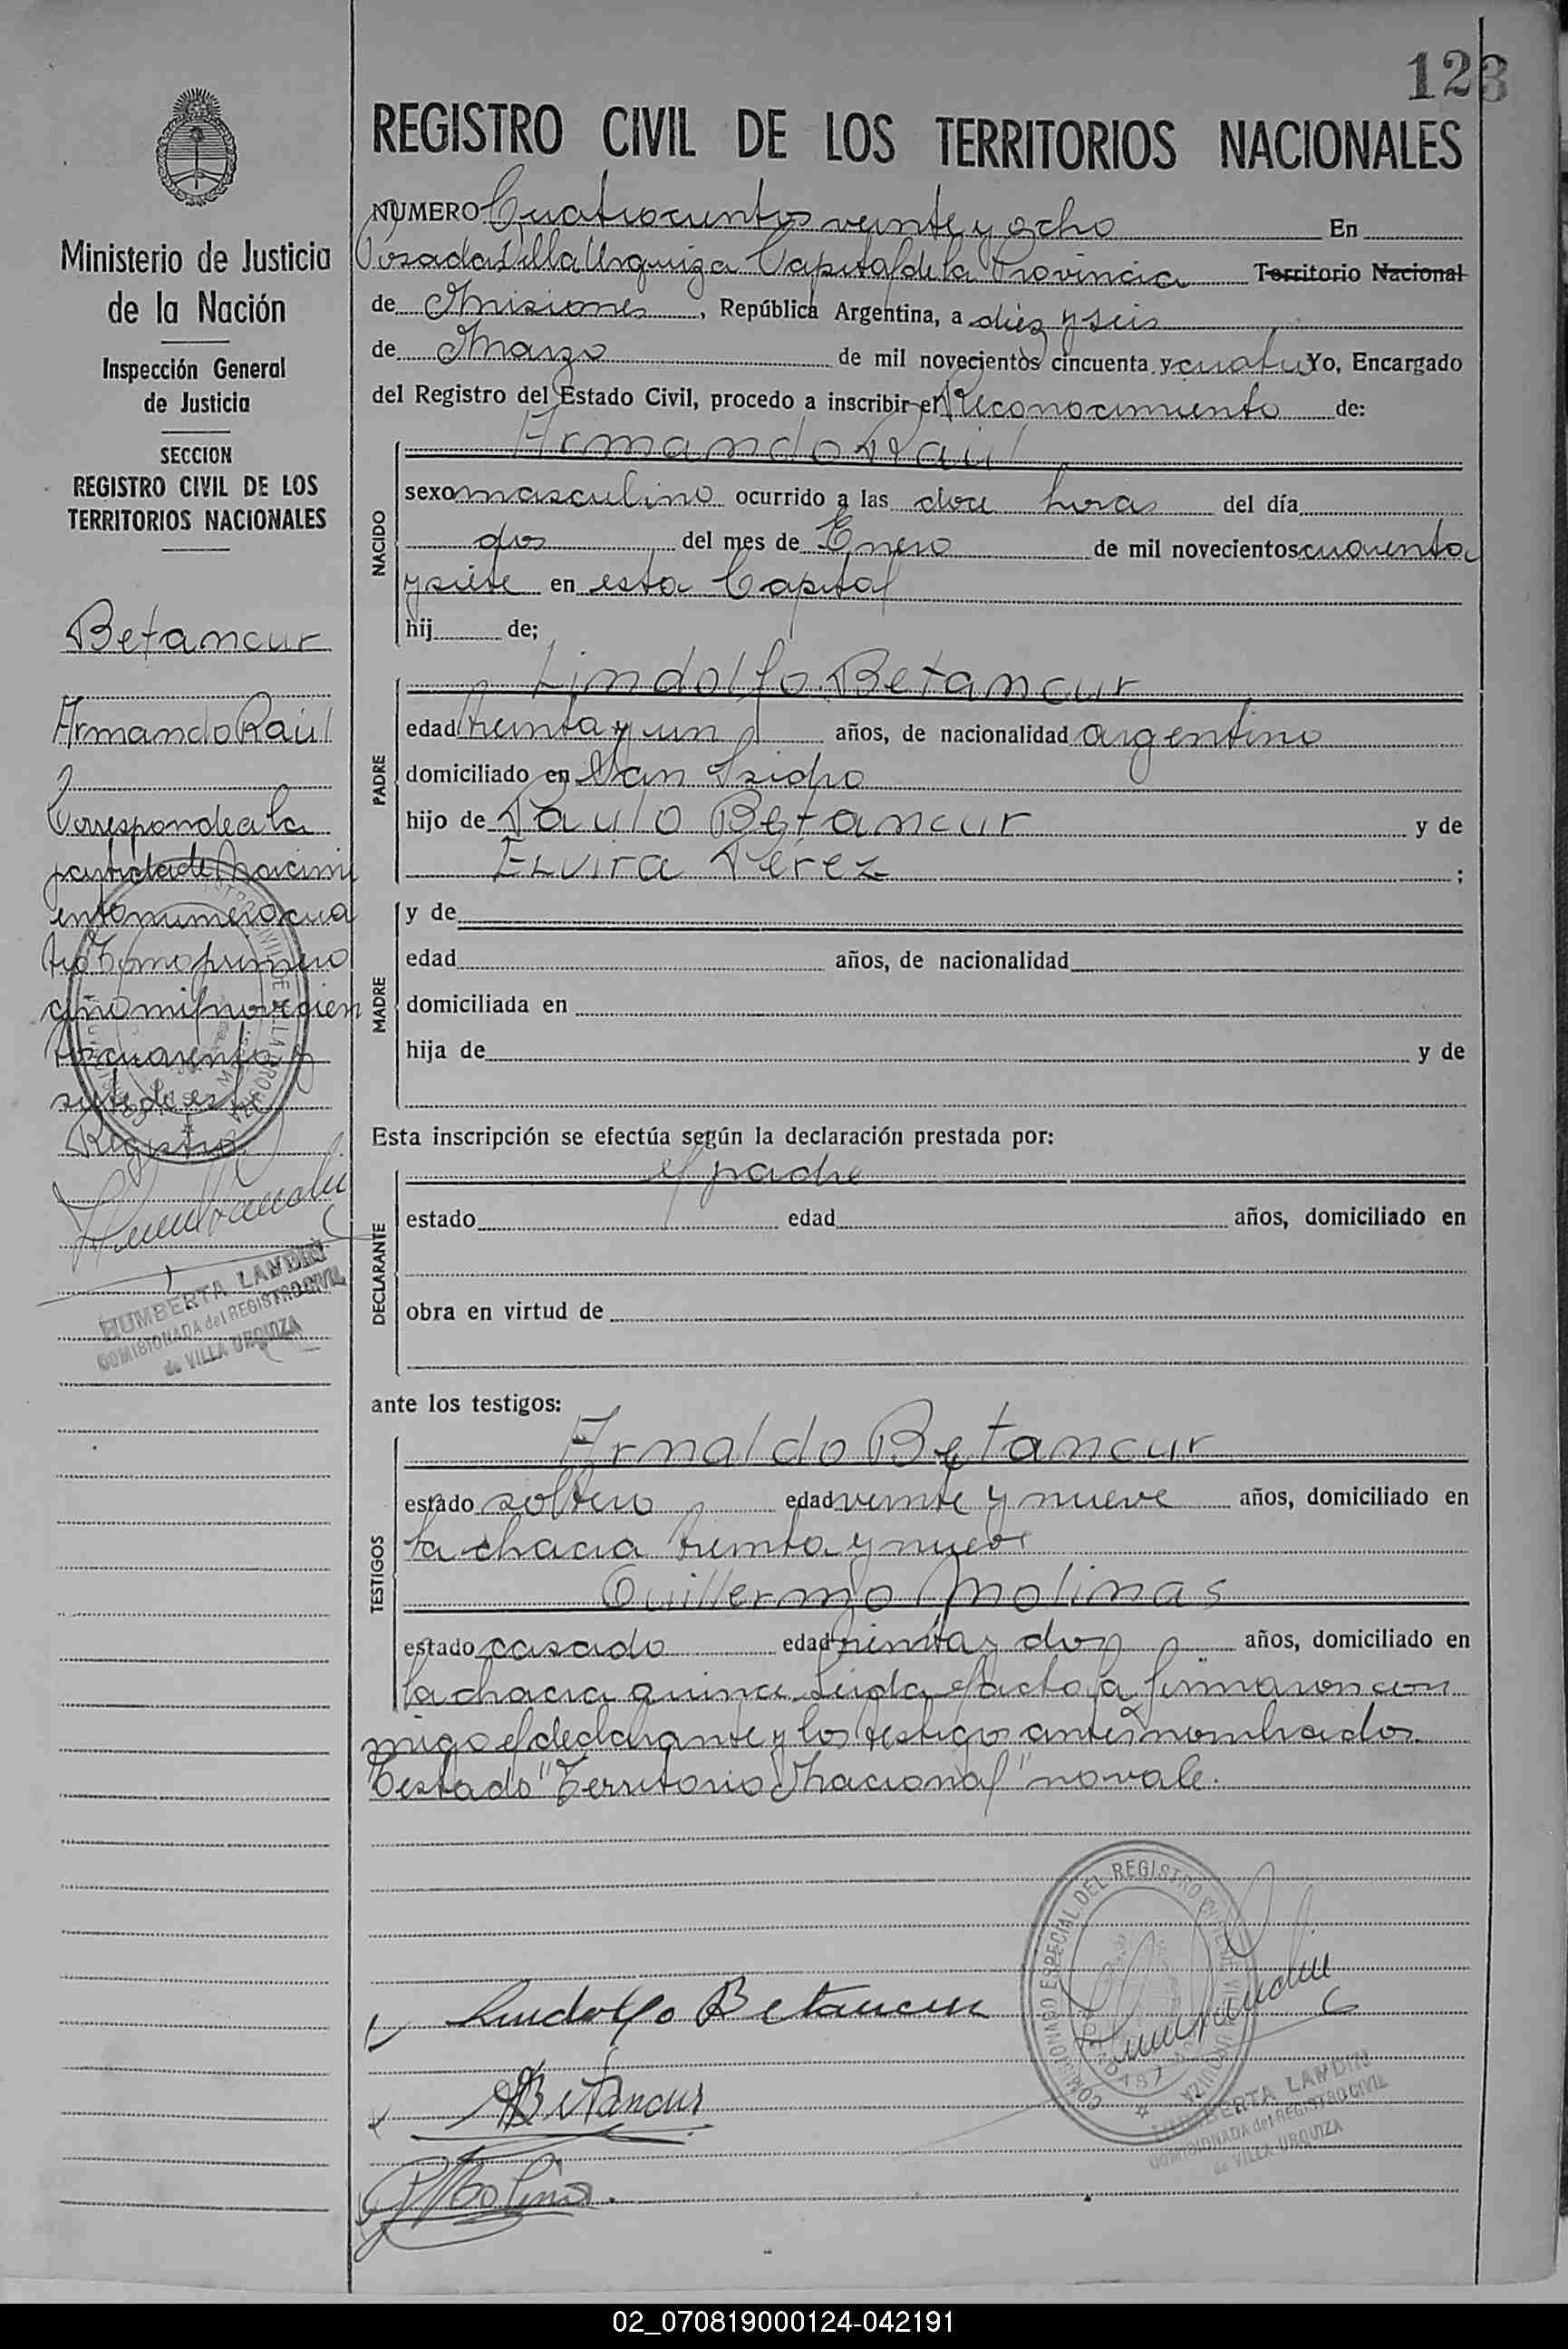 123
REGISTRO CIVIL DE LOS TERRITORIOS NACIONALES
NUMERO Cuatrocientos veinte y ocho En
Posadas Villa Urquiza Capital de la Provincia Territorio Nacional
de Misiones, República Argentina, a diez y seis
de Marzo de mil novecientos cincuenta y cuatro Yo, Encargado
del Registro del Estado Civil, procedo a inscribir el Reconocimiento de:
NACIDO
Armando Raúl
sexo masculino ocurrido a las doce horas del día
dos del mes de Enero de mil novecientos cuarenta
y siete en esta Capital
hij de;
PADRE
Lindolfo Betancur
edad treinta y un años, de nacionalidad argentino
domiciliado en San Isidro
hijo de Paulo Betancur y de
Elvira Pérez ;
MADRE
y de
edad años, de nacionalidad
domiciliada en
hija de y de
Esta inscripción se efectúa según la declaración prestada por:
DECLARANTE
el padre
estado edad años, domiciliado en
obra en virtud de
ante los testigos:
TESTIGOS
Arnaldo Betancur
estado soltero edad veinte y nueve años, domiciliado en
la chacra treinta y nueve
Guillermo Molinas
estado casado edad treinta y dos años, domiciliado en
la chacra quince Leida el acta la firmaron con
migo el declarante y los testigos antes nombrados.
Testado "Territorio Nacional" no vale.
Lindolfo Betancur
ABetancur
GMolinas.
COMISIONADO ESPECIAL DEL REGISTRO CIVIL DE VILLA URQUIZA
HUMBERTA LANDIN
COMISIONADA del REGISTRO CIVIL
de VILLA URQUIZA
Ministerio de Justicia
de la Nación
Inspección General
de Justicia
SECCION
REGISTRO CIVIL DE LOS
TERRITORIOS NACIONALES
Betancur
Armando Raúl
Corresponde a la
partida de Nacimi
ento numero cua
tro Tomo primero
año mil novecien
tos cuarenta y
siete de este
Registro
HUMBERTA LANDIN
COMISIONADA del REGISTRO CIVIL
de VILLA URQUIZA
02_070819000124-042191